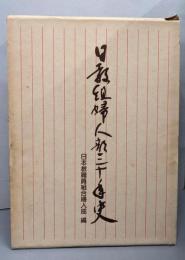 日教組婦人部三十年史
日本教職員組合婦人部 編